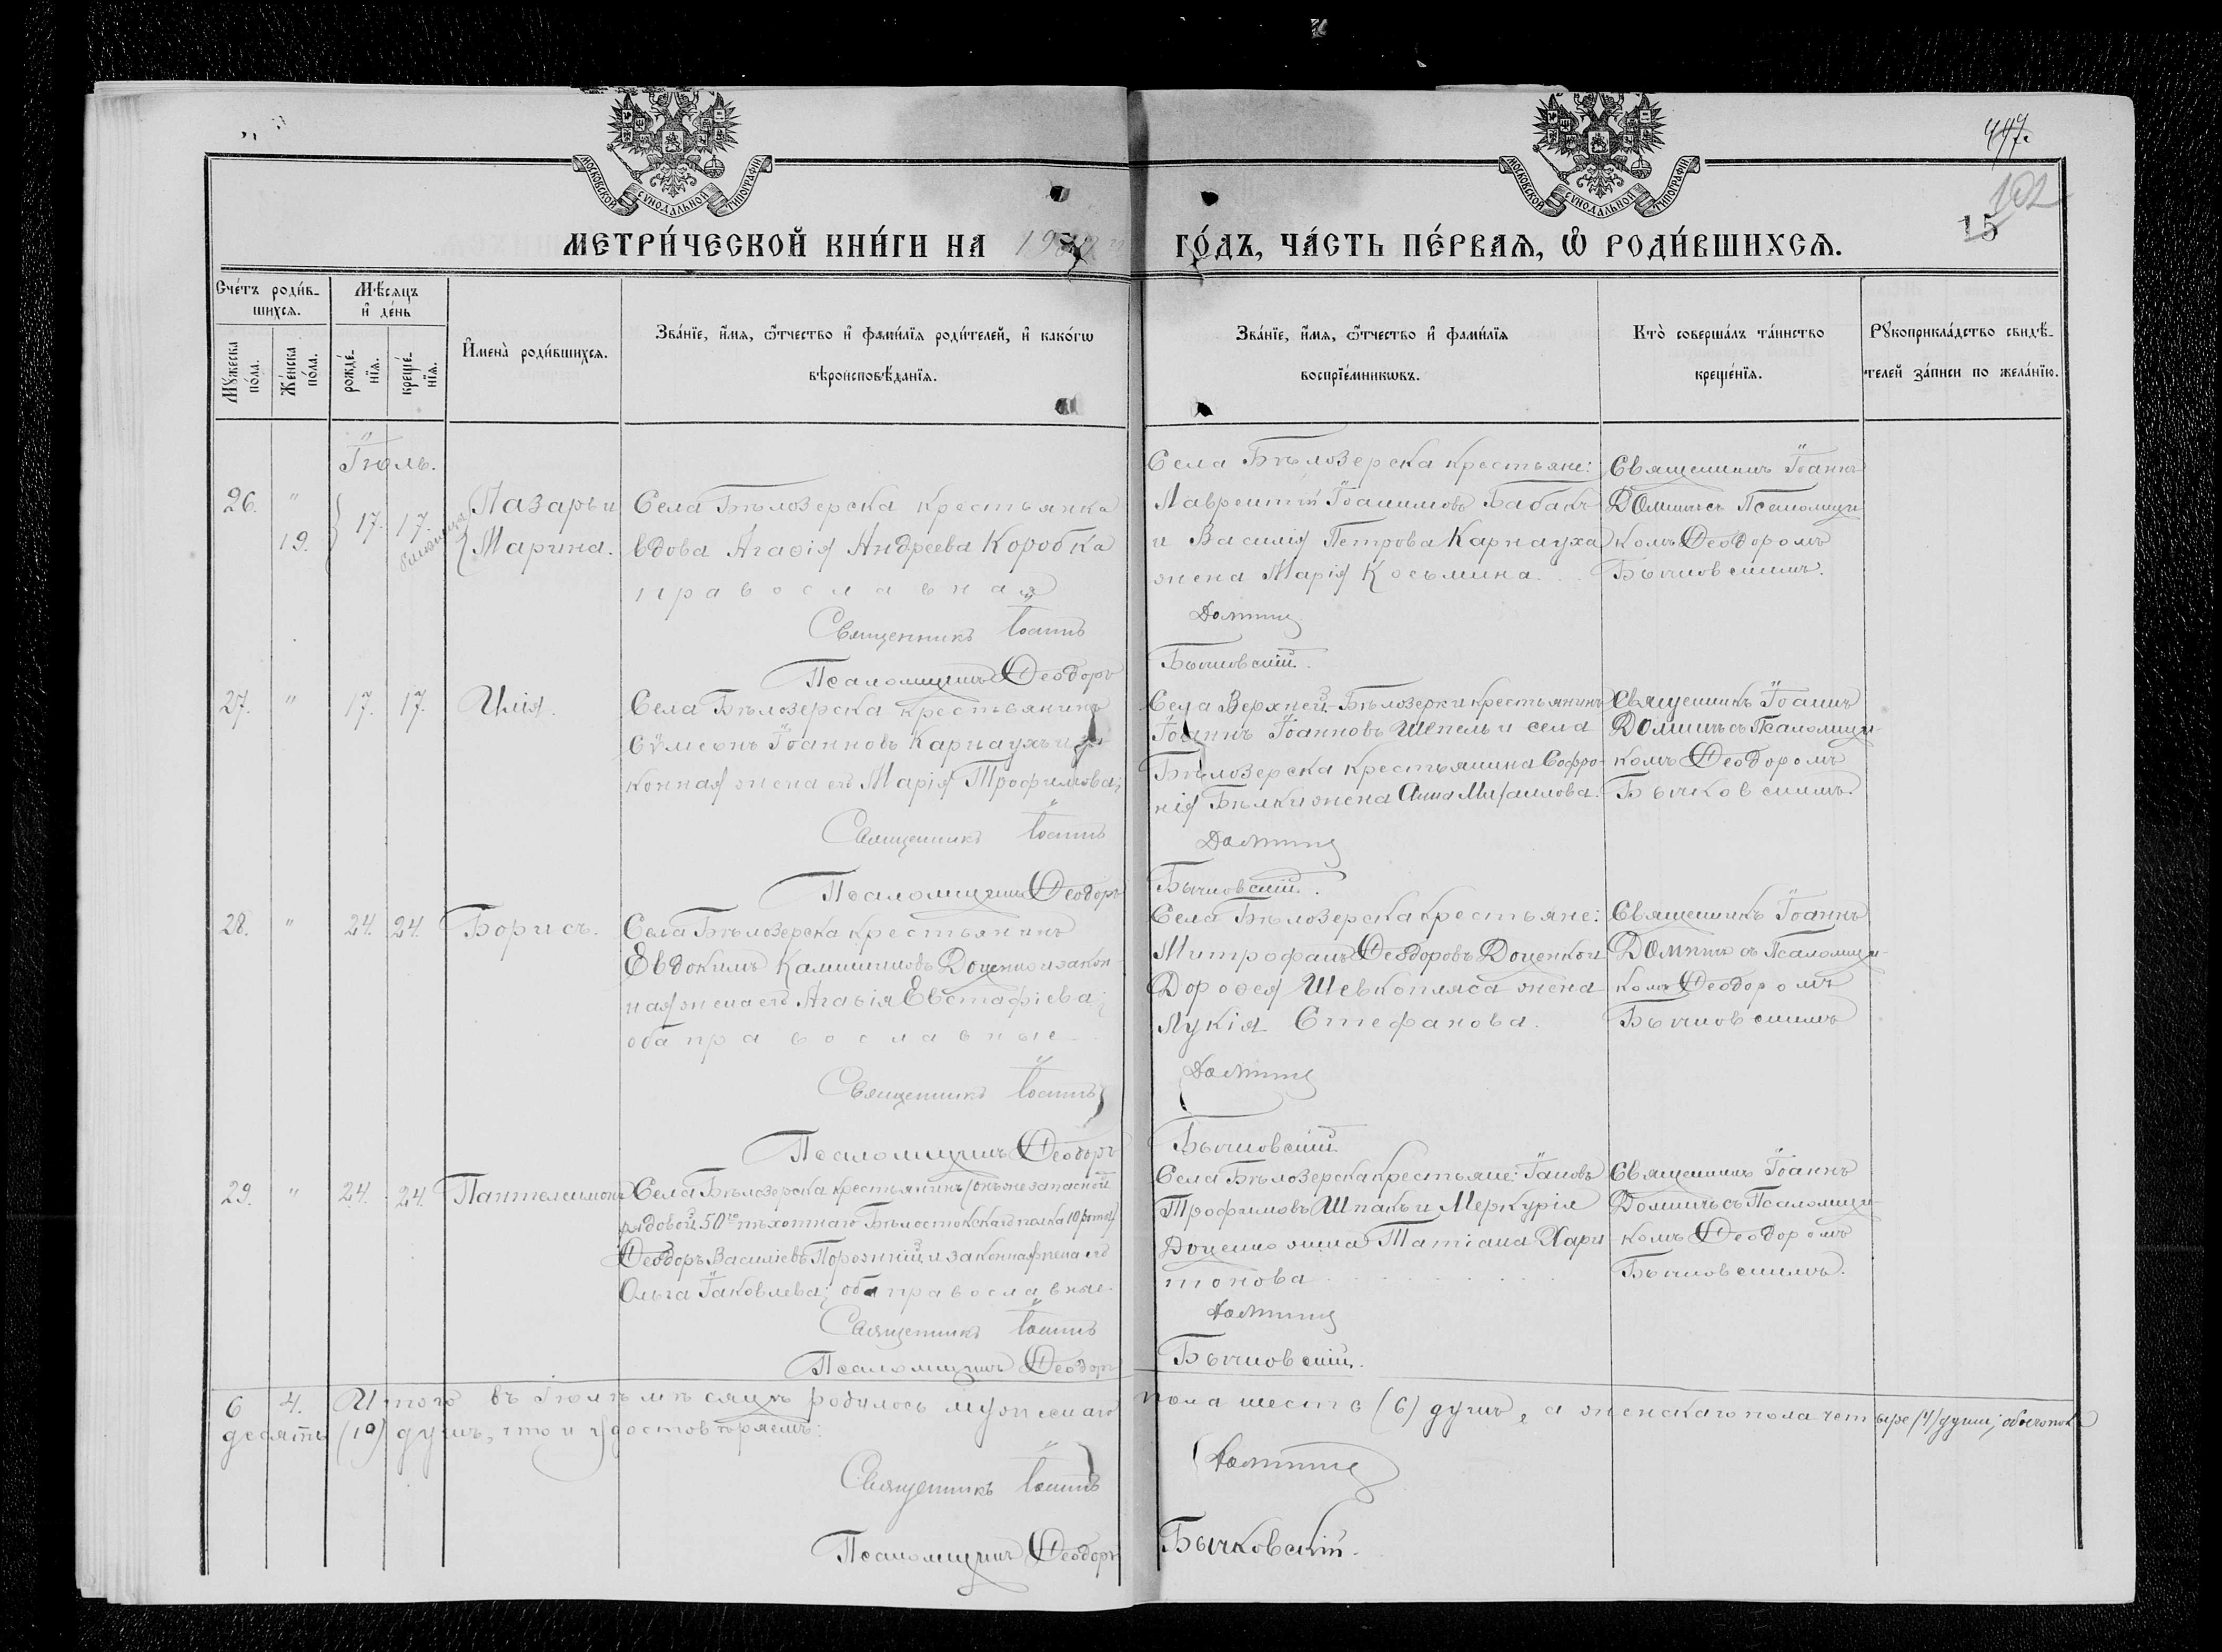 447.
102
15
МОСКОВСКОЙ СѴНОДАЛЬНОЙ ТИПОГРАФІИ
МОСКОВСКОЙ СѴНОДАЛЬНОЙ ТИПОГРАФІИ
МЕТРИ́ЧЕСКОЙ КНИ́ГИ НА
ГО́ДЪ, ЧА́СТЬ ПЕ́РВАѦ, Ѡ҆ РОДИ́ВШИХСѦ.
Сче́тъ роди́в-
шихсѧ.
Мꙋ́жеска по́ла.
Же́нска по́ла.
Мѣ́сѧцъ
и҆ де́нь
рожде́-нїѧ.
креще́-нїѧ.
И҆мена̀ роди́вшихсѧ.
Зва́нїе, и҆́мѧ, ѻ҆́тчество и҆ фами́лїѧ роди́телей, и҆ како́гѡ
вѣроисповѣ́данїѧ.
Зва́нїе, и҆́мѧ, ѻ҆́тчество и҆ фами́лїѧ
воспрїе́мникѡвъ.
Кто̀ соверша́лъ та́инство
креще́нїѧ.
Рꙋкоприкла́дство свидѣ́-
телей за́писи по жела́нїю.
Іюль.
26. " 17. 17. Лазарь и
19. Марина.
Села Бѣлозерска крестьянка
вдова Агаѳія Андреева Коробка
православная
Священникъ Іоаннъ
Псаломщикъ Ѳеодоръ
Села Бѣлозерска крестьяне:
Лаврентій Іоакимовъ Бабакъ
и Василія Петрова Карнауха
жена Марія Косьмина
Домнич
Бычковскій.
Священникъ Іоаннъ
Домничъ съ Псаломщи-
комъ Ѳеодоромъ
Бычковскимъ.
27. " 17. 17. Илія.
Села Бѣлозерска крестьянинъ
Сѷмеонъ Іоанновъ Карнаухъ и за-
конная жена его Марія Трофимова;
Священникъ Іоаннъ
Псаломщикъ Ѳеодоръ
Села Верхней-Бѣлозерки крестьянинъ
Іоаннъ Іоанновъ Шепель и села
Бѣлозерска крестьянина Софро-
нія Бѣлки жена Анна Михаилова.
Домнич
Бычковскій.
Священникъ Іоаннъ
Домничъ съ Псаломщи-
комъ Ѳеодоромъ
Бычковскимъ.
28. " 24. 24. Борисъ.
Села Бѣлозерска крестьянинъ
Евдокимъ Доценко и закон-
ная жена его Агаѳія Евстафіева;
оба православные
Священникъ Іоаннъ
Псаломщикъ Ѳеодоръ
Села Бѣлозерска крестьяне:
Митрофанъ Ѳеодоровъ Доценко и
Дороѳея Шевкопляса жена
Лукія Стефанова.
Домнич
Бычковскій
Священникъ Іоаннъ
Домничъ съ Псаломщи-
комъ Ѳеодоромъ
Бычковскимъ
29. " 24. 24. Пантелеимонъ
Села Бѣлозерска крестьянинъ (онъ же запасной
рядовой 50го пѣхотнаго Бѣлостокскаго полка 10 роты)
Ѳеодоръ Василіевъ Порожній и законная жена его
Ольга Іаковлева; оба православные.
Священникъ Іоаннъ
Псаломщикъ Ѳеодоръ
Села Бѣлозерска крестьяне: Іаковъ
Трофимовъ Шпакъ и Меркурія
Доценко жена Татіана Хари-
тонова
Домнич
Бычковскій.
Священникъ Іоаннъ
Домничъ съ Псаломщи-
комъ Ѳеодоромъ
Бычковскимъ.
6 4. Итого въ Іюлѣ мѣсяцѣ родилось мужескаго пола шесть (6) душъ, а женскаго пола четыре (4) души; обоего пола
десять (10) душъ, что и удостовѣряемъ:
Священникъ Іоаннъ Домнич
Псаломщикъ Ѳеодоръ Бычковскій.